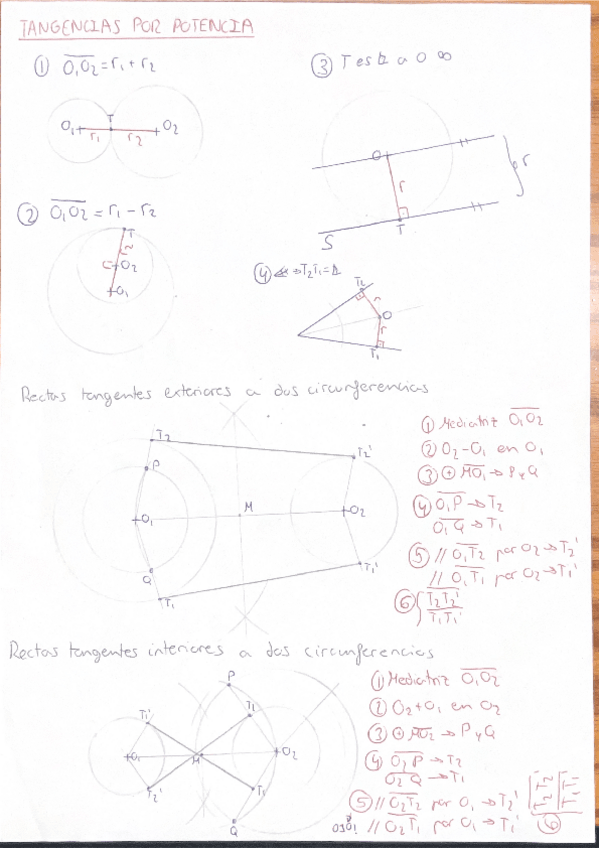 TANGENCIAS POR POTENCIA
① O₁O₂ = r₁ + r₂
T
O₁ r₁ r₂ O₂
② O₁O₂ = r₁ - r₂
T
r₂
O₂
O₁
③ T es a O ∞
O
r
r
S
T
④ → T₂T₁ =
T₂
r
O
r
T₁
Rectas tangentes exteriores a dos circunferencias
T₂
T₂'
P
O₁
M
O₂
Q
T₁
T₁'
① Mediatriz O₁O₂
② O₂-O₁ en O₁
③ ⊕ MO₁ → P y Q
④ O₁P → T₂
O₁Q → T₁
⑤ // O₁T₂ por O₂ → T₂'
// O₁T₁ por O₂ → T₁'
⑥ { T₂T₂'
T₁T₁'
Rectas tangentes interiores a dos circunferencias
P
T₁'
T₁
O₁
M
O₂
T₂'
T₁
Q
① Mediatriz O₁O₂
② O₂+O₁ en O₂
③ ⊕ MO₂ → P y Q
④ O₂P → T₂
O₂Q → T₁
⑤ // O₂T₂ por O₁ → T₂'
// O₂T₁ por O₁ → T₁'
T₂T₂'
T₁T₁'
⑥